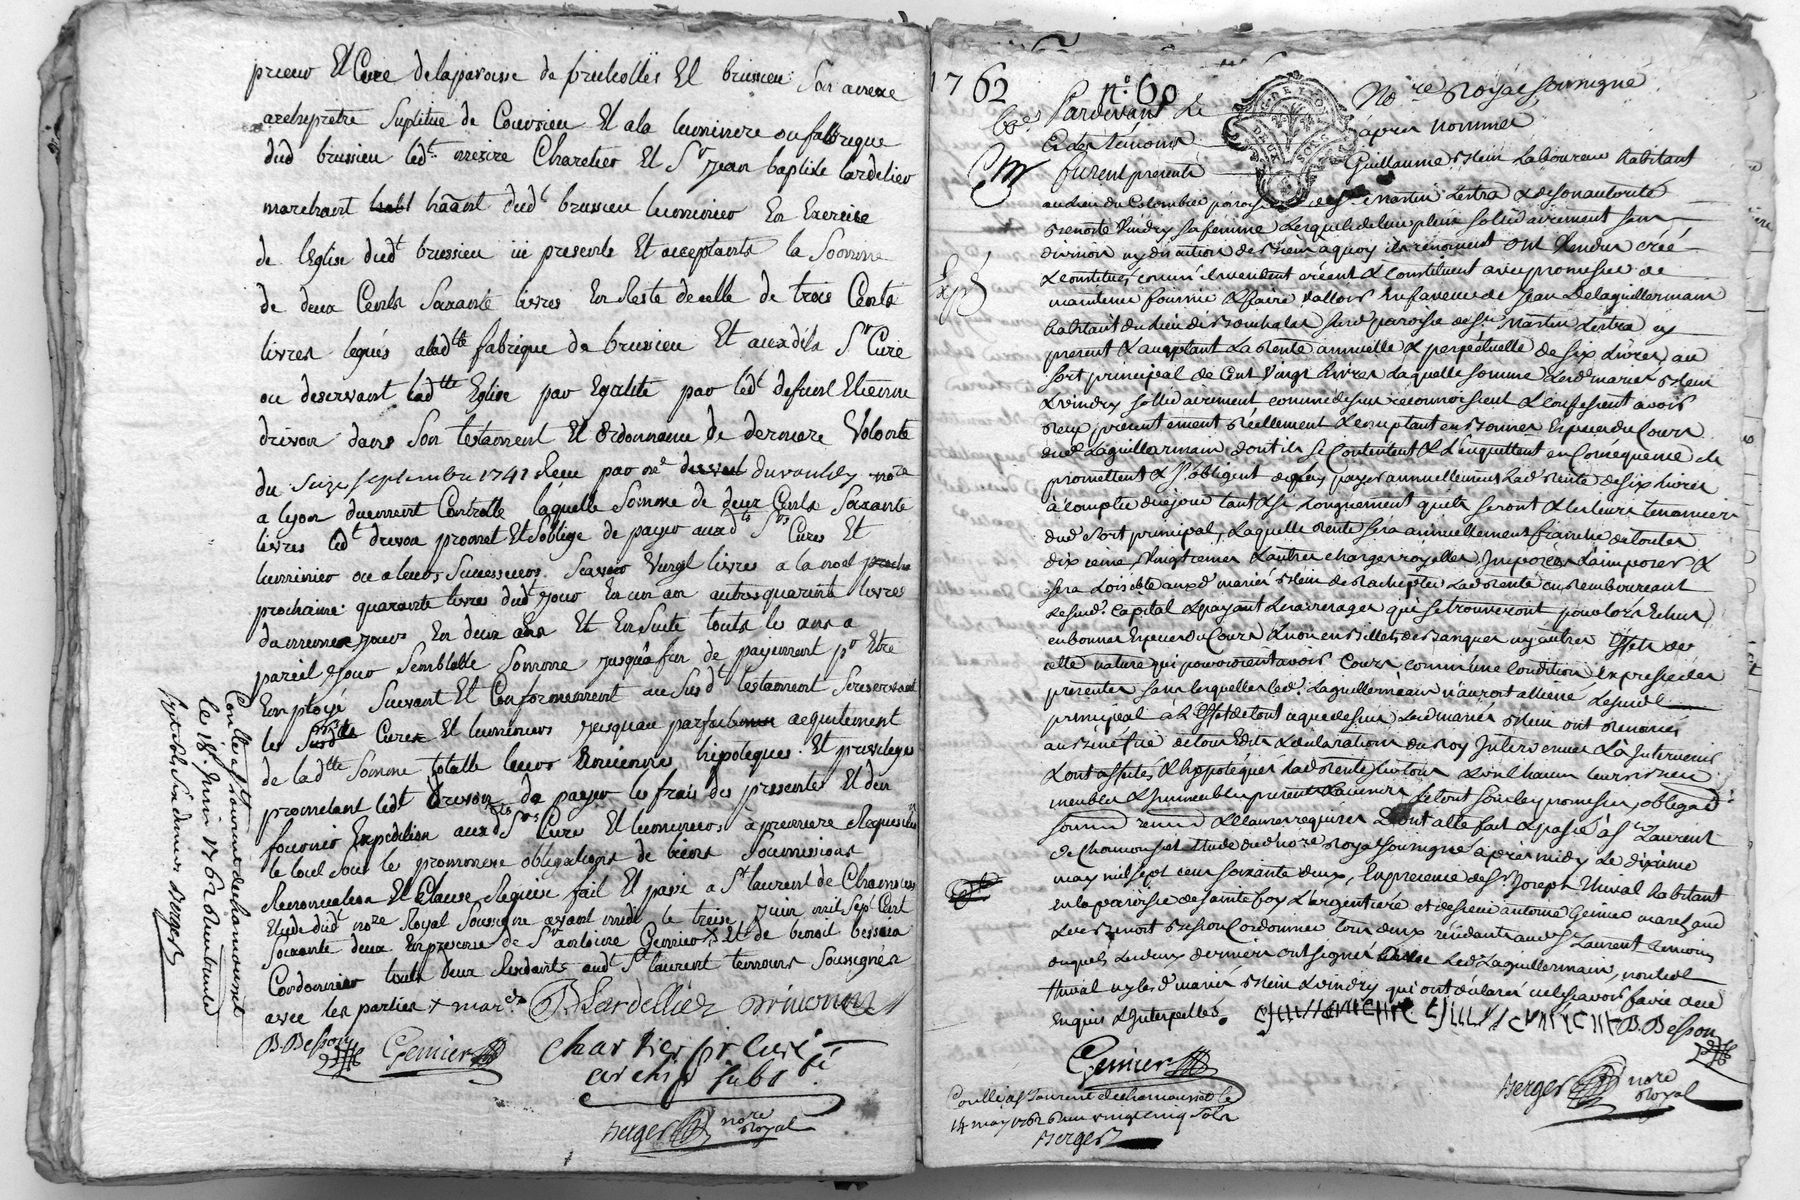 prieur Et Cure de la paroisse de Et brussieu Son annexe
archipretre Suptitue de Courzieu Et a la luminere ou fabrique
dud brussieu led.t messire Charetier Et S.r Jean baptiste Lardelier
marchant habt hâant dud.t brussieu luminier En Exercise
de l'Eglise dud.t brussieu ici presents Et acceptants la Somme
de deux Cents Soixante livres En Reste de celle de trois Cents
livres legués a lad.tte fabrique de brussieu Et auxdits S.r Curé
ou deservant lad.tte Eglise par Egalité par led.t defunt Etienne
drivon dans Son testament Et Ordonnance de derniere Volonté
du Seize septembre 1741 Receu par me duvauley nore
a lyon duement Controllé laquelle Somme de deux Cents Soixante
livres led.t drevon promet Et S'oblige de payer auxd.ts S.rs Cures Et
luminier ou a leurs Successeurs Scavoir Vingt livres a la noel proche
prochaine quarante livres dud.t jour En un an autres quarante livres
du meme jour En deux ans Et En Suite touts les ans a
pareil jour Semblable Somme jusqu'a fin de payement p.r Etre
Employé Suivant Et Conformement au Susd.t testament Se reservant
les Cures Et luminiers jusqu'au parfait acquitement
de lad.tte Somme totalle leurs Enciennes hipoteques Et privilege
promettant led.t drevon de payer les frais des presentes Et d'en
fournir Expedition auxd.ts S.rs Cure Et luminiers a premiere Requisition
le tout Sous les promesses obligations de biens Soumissions
Renonciation Et Clause Requise fait Et passé a S.t laurent de Chamousset
Etude dud.t nore Royal Soussigné avant midi le treize juin mil Sept Cent
Soixante deux En presence de S.r antoine Gemier X Et de benoit besson
Cordonnier touts deux Residants aud.t S.t laurent temoins Soussignés
avec les parties + march
B Lardellier drivonin
B. Besson Gemier Chartier pr Curé
archip. subt.é
Berger nore Royal
Conllé a S.t Laurent de chamousset
le 18.e Juin 1762 Reçu trente
huit sols Six deniers Berger
1762 n.o 60
Pardevant Le No.re Royal Soussigné
Et des témoins après nommés
furent presents Guillaume Laboureur habitant
au Lieu du Colombier paroisse de S.t Martin Lestra & de son autorité
Benoite Vindry sa femme Lesquels de leur plein solidairement sans
division ny discution de Biens a quoy ils renoncent ont Vendu créé
& constitué comme ils vendent créent & constituent avec promesse de
maintenir fournir & faire valloir en faveur de Jean Delaguillermain
habitant du Lieu de surd. paroisse de S.t Martin Lestra icy
present & acceptant La Rente annuelle & perpetuelle de six Livres au
sort principal de Cent Vingt Livres Laquelle somme Lesd. mariés
& vindry sollidairement comme dessus reconnoissent & confessent avoir
Reçu presentement Réellement & comptant en Bonnes Especes du Cours
dud. Laguillermain dont ils se Contentent & L'en quittent en Conséquence ils
promettent & s'obligent de luy payer annuellement Lad. Rente de six Livres
à compter du jour tant & si Longuement qu'ils seront & leurs tenanciers
dud. sort principal, Laquelle Rente sera annuellement franche de toutes
dixieme, Vingtiemes & autres charges royalles Imposées & a imposer &
sera Loisible auxd. mariés de Racheptter Lad. Rente en Rembourceant
Le sud. Capital & payant Les arrerages qui se trouveront pour Lors Echus
en bonnes Especes du Cours & non en Billets de Banques ny autres Effets de
cette nature qui pourroient avoir Cours comme une Condition Expresse des
presentes sans Lesquelles Led. Laguillermain n'auroit alliené Le sud.
principal à L'Effet de tout ce que dessus Lesd. mariés ont Renoncé
au Benefice de tous Edits & déclarations du Roy Intervenus & a Intervenir
& ont affecté & hypotéqués Lad. Rente sur tous & uns chacun Leurs Biens
meubles & immeubles presents & avenir Le tout sous les promesses, obligaõns
soumõns renonõns & clauses requises Dont acte fait & passé à S.t Laurent
de Chamousset Etude dud. nore Royal Soussigné après midy Le dixieme
may mil sept cent soixante deux, En presence de S.r Joseph Thival habitant
en la paroisse de Sainte foy L'argentiere et de sieur antoine Gemier marchand
& de Benoit Besson Cordonnier tous deux résidants aud. S.t Laurent temoins
desquels Les deux derniers ont signé avec Led. Laguillermain, non led.
Thival ny Lesd. mariés & vindry qui ont declaré ne le sçavoir faire de ce
Enquis & Interpellés.
B. Besson
Gemier
Berger nore Royal
Conllé a S.t Laurent de chamousset le
14 may 1762 Reçu vingt cinq Sols
Berger